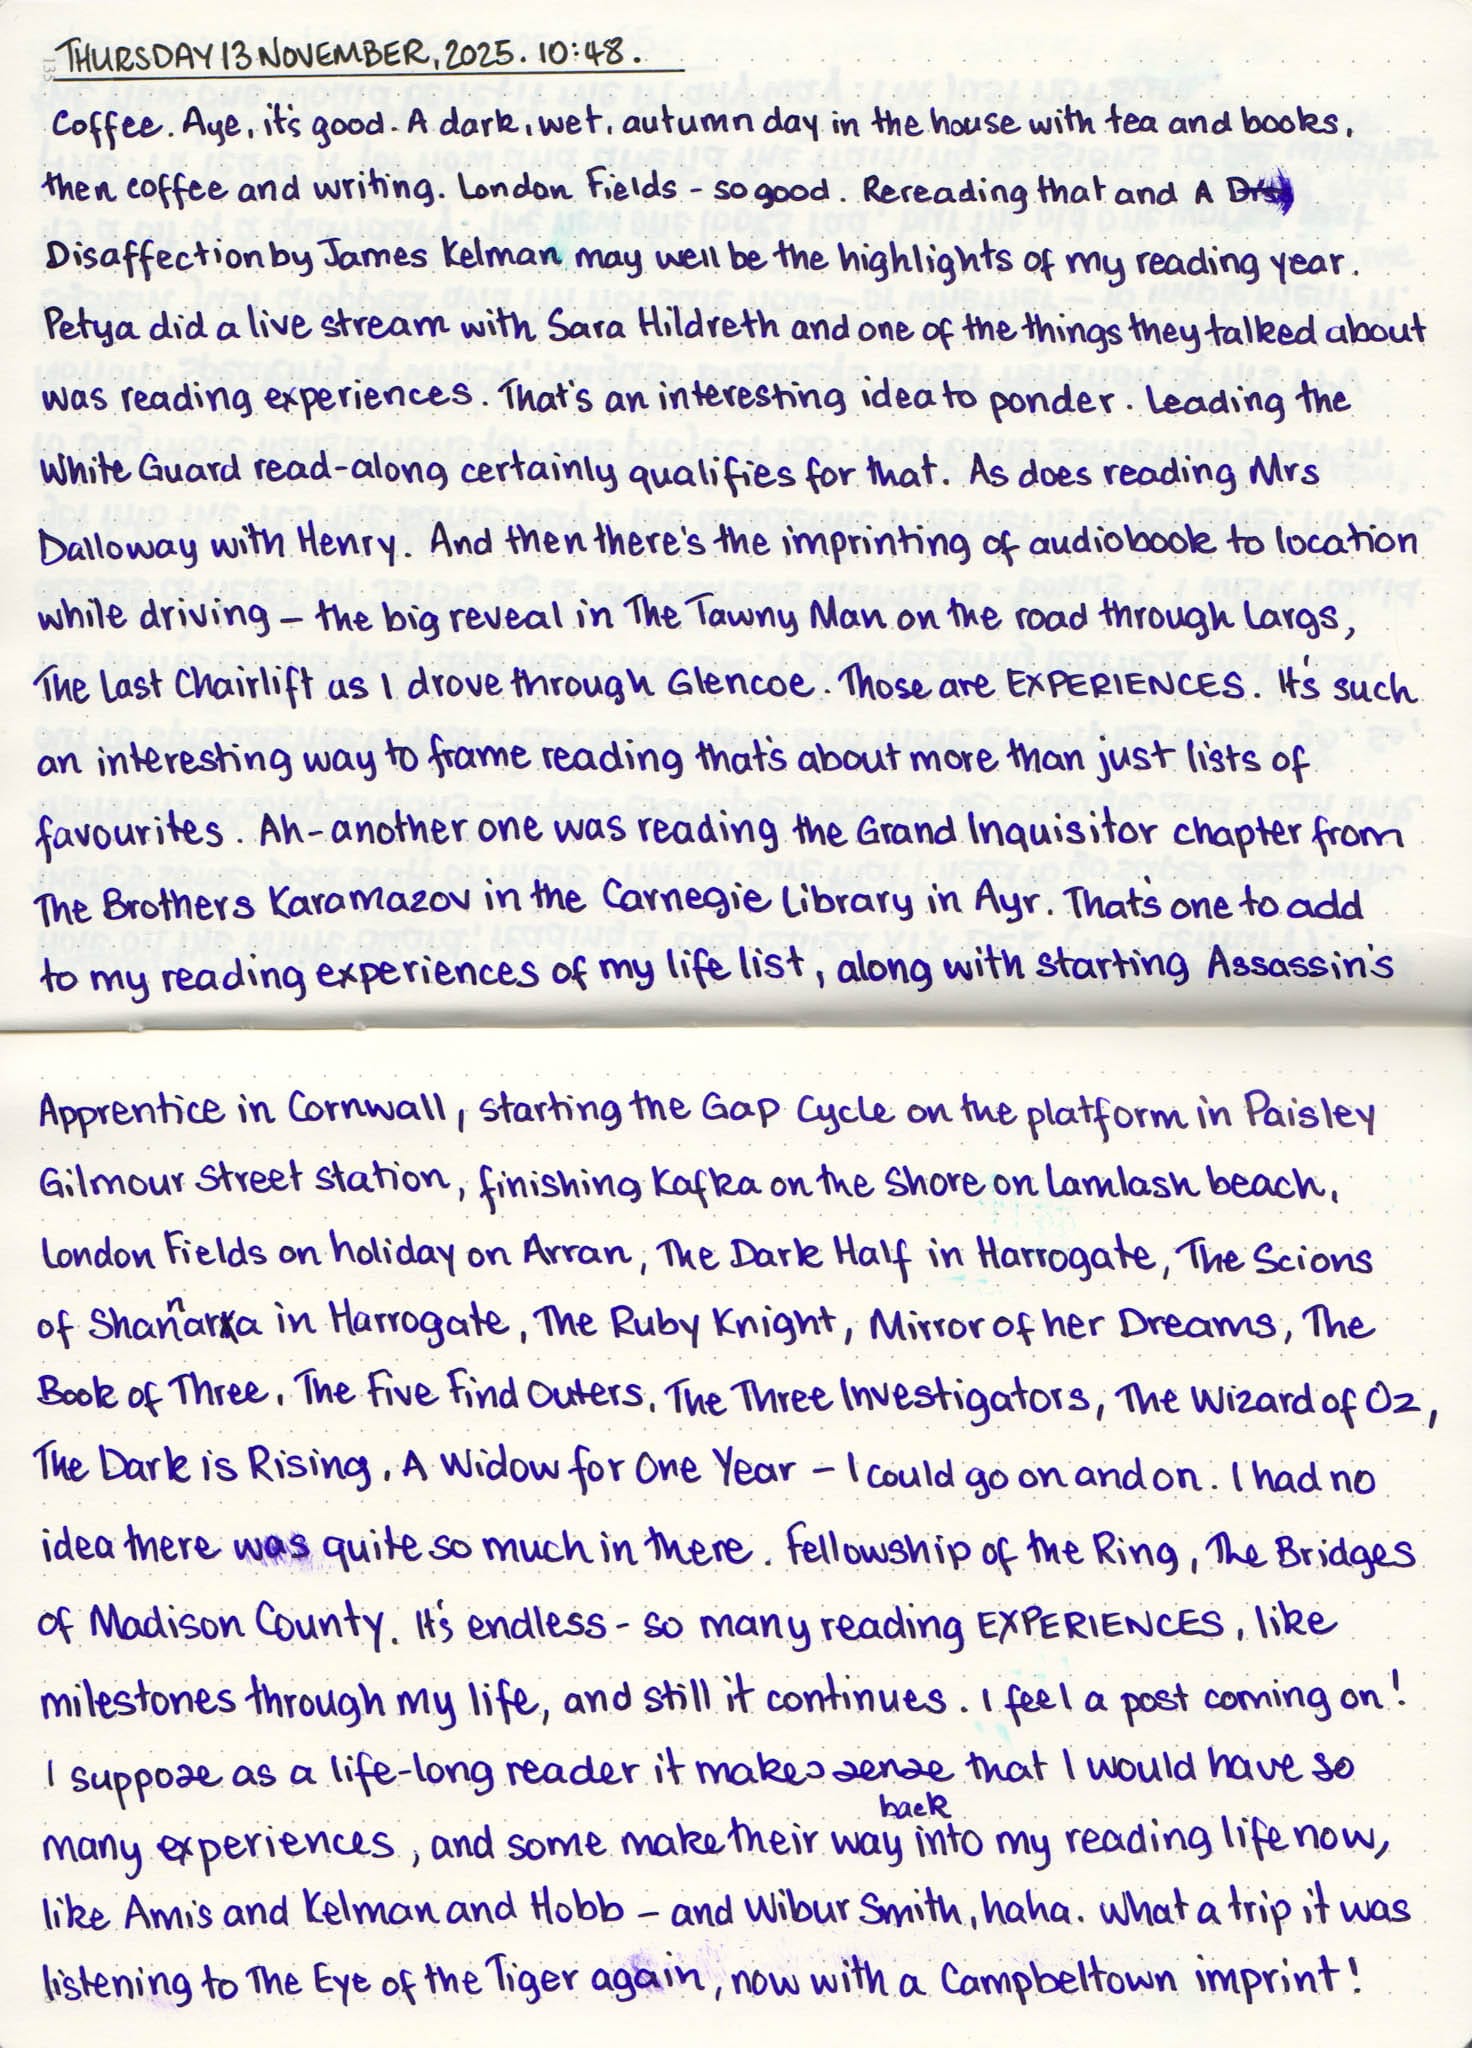 THURSDAY 13 NOVEMBER, 2025. 10:48.
Coffee. Aye, it's good. A dark, wet, autumn day in the house with tea and books,
then coffee and writing. London Fields - so good. Rereading that and A
Disaffection by James Kelman may well be the highlights of my reading year.
Petya did a live stream with Sara Hildreth and one of the things they talked about
was reading experiences. That's an interesting idea to ponder. Leading the
White Guard read-along certainly qualifies for that. As does reading Mrs
Dalloway with Henry. And then there's the imprinting of audiobook to location
while driving – the big reveal in The Tawny Man on the road through Largs,
The Last Chairlift as I drove through Glencoe. Those are EXPERIENCES. It's such
an interesting way to frame reading that's about more than just lists of
favourites. Ah - another one was reading the Grand Inquisitor chapter from
The Brothers Karamazov in the Carnegie Library in Ayr. That's one to add
to my reading experiences of my life list, along with starting Assassin's
Apprentice in Cornwall, starting the Gap Cycle on the platform in Paisley
Gilmour Street station, finishing Kafka on the Shore on Lamlash beach,
London Fields on holiday on Arran, The Dark Half in Harrogate, The Scions
of Shannara in Harrogate, The Ruby Knight, Mirror of her Dreams, The
Book of Three, The Five Find Outers, The Three Investigators, The Wizard of Oz,
The Dark is Rising, A Widow for One Year – I could go on and on. I had no
idea there was quite so much in there. Fellowship of the Ring, The Bridges
of Madison County. It's endless - so many reading EXPERIENCES, like
milestones through my life, and still it continues. I feel a post coming on!
I suppose as a life-long reader it makes sense that I would have so
many experiences, and some make their way back into my reading life now,
like Amis and Kelman and Hobb – and Wilbur Smith, haha. What a trip it was
listening to The Eye of the Tiger again, now with a Campbeltown imprint!